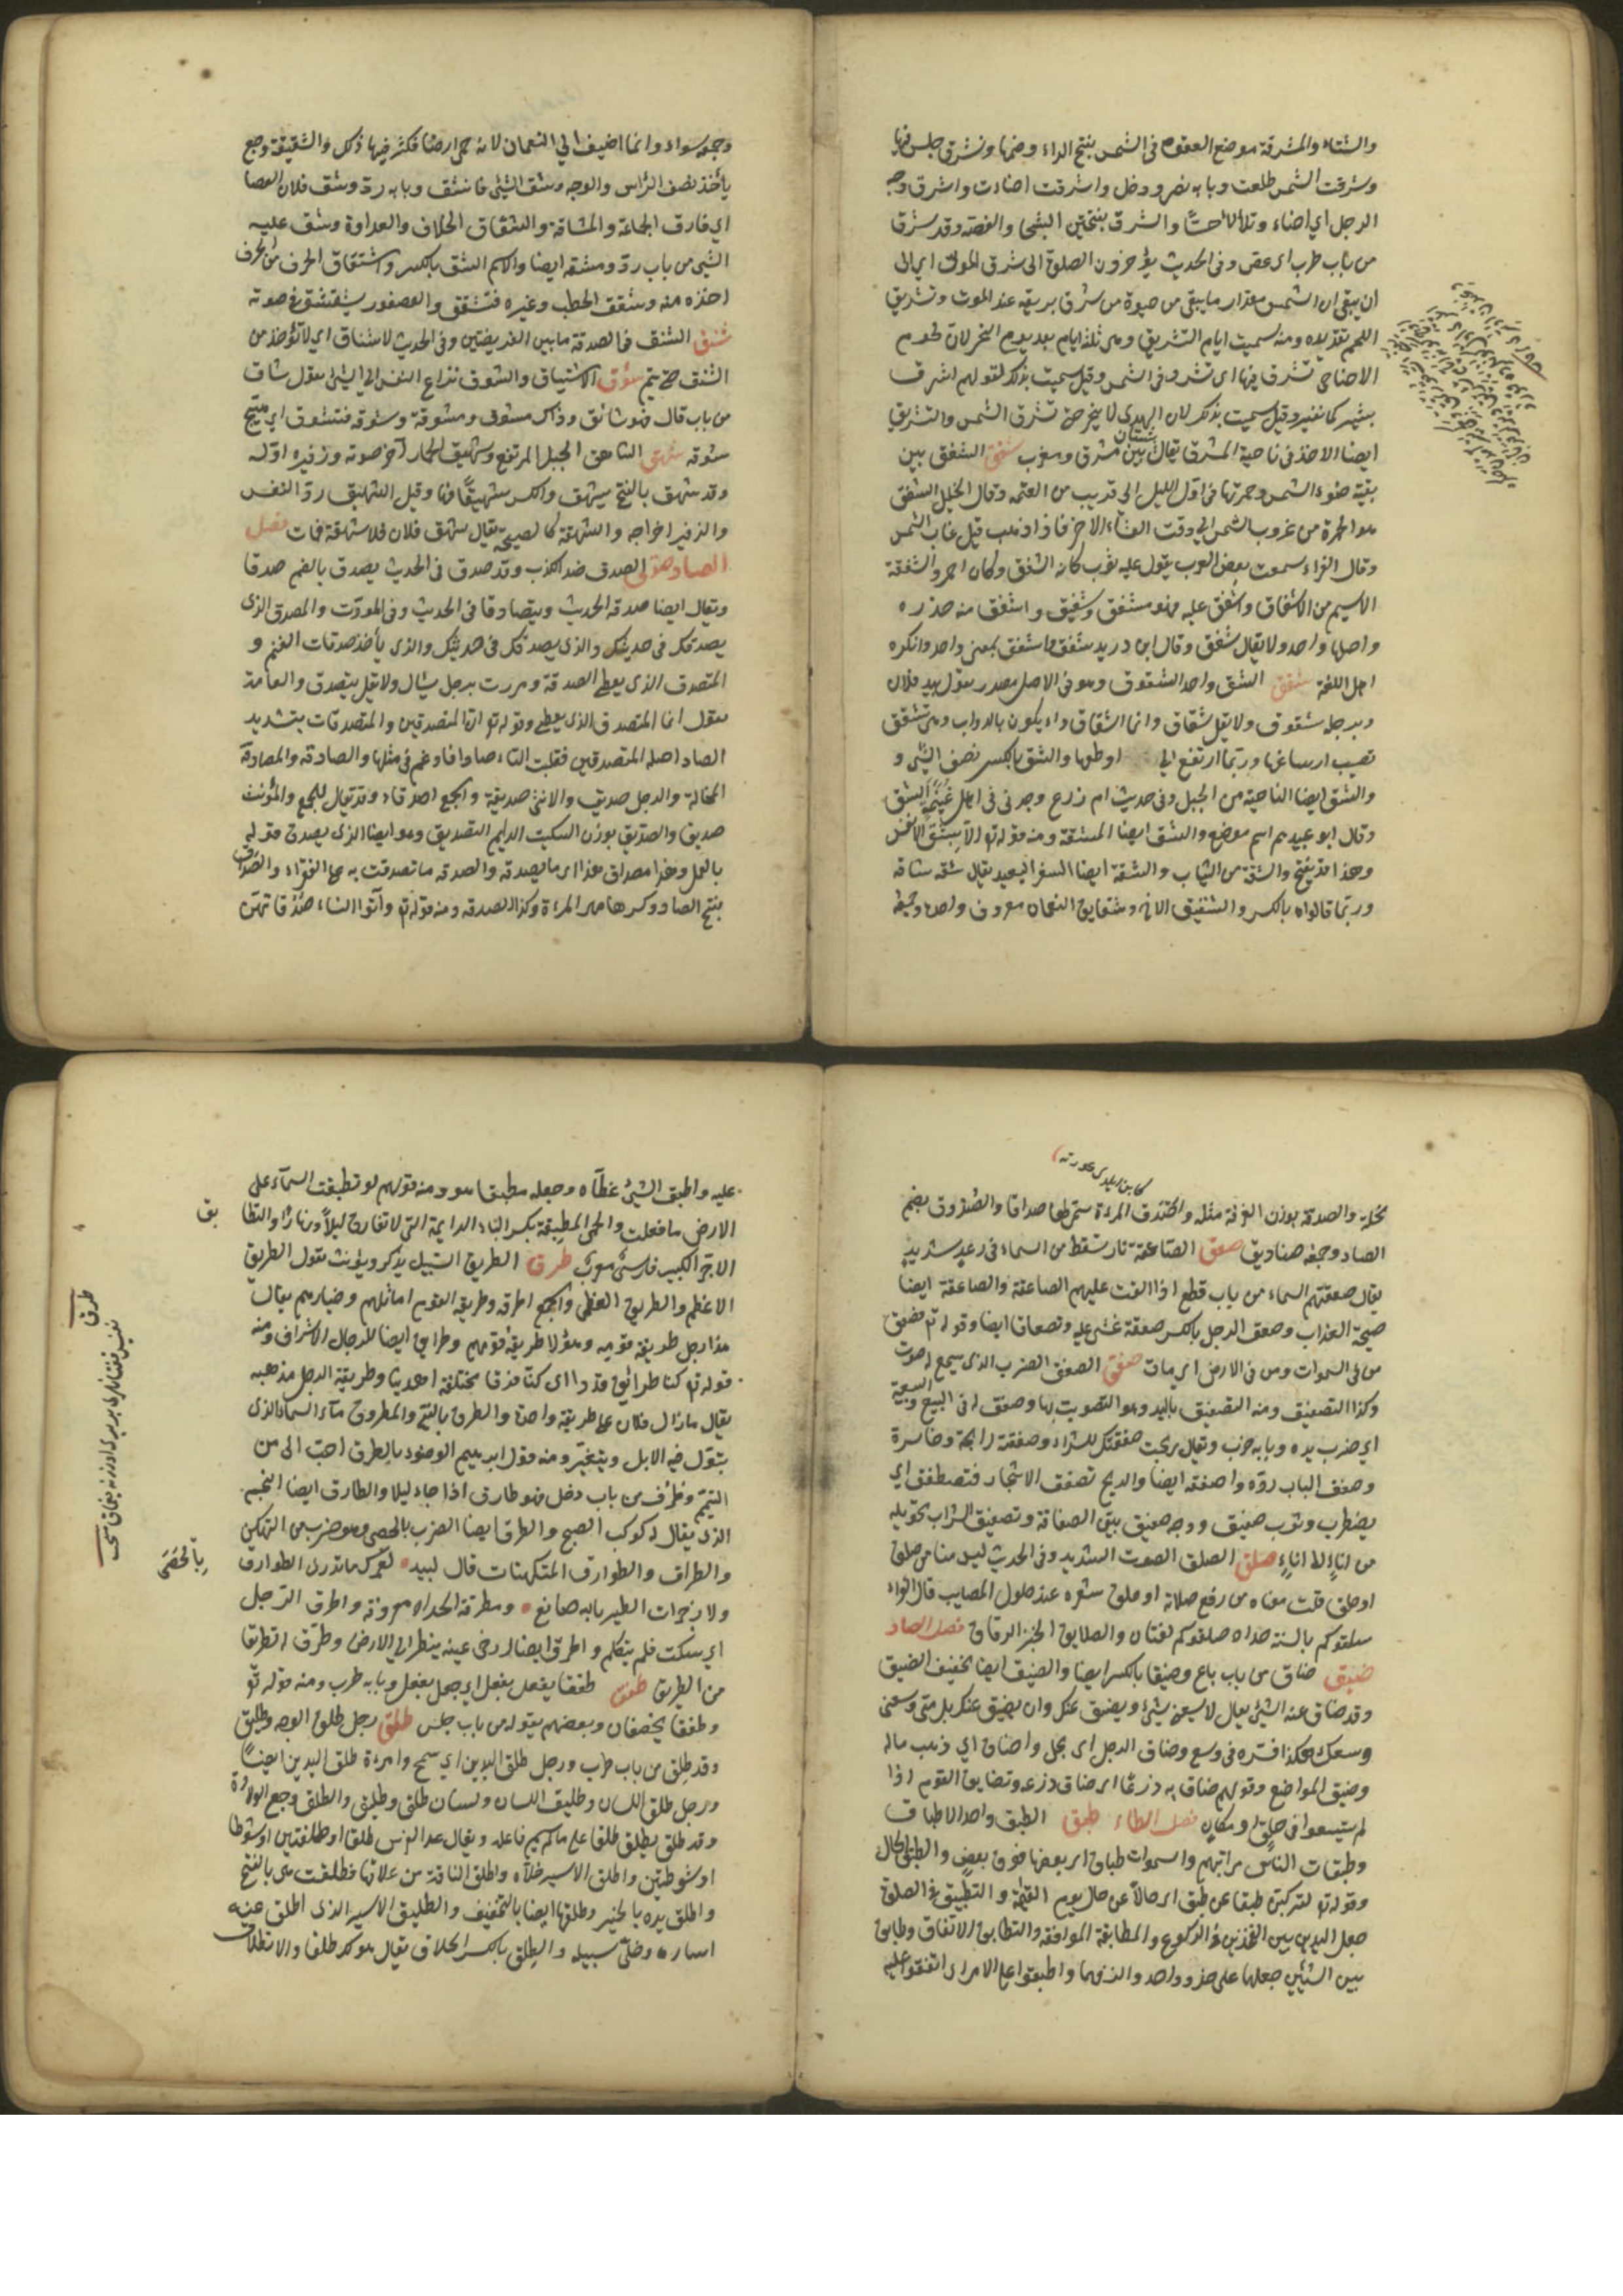 والشتاء والمشرقة موضع القعود فى الشمس بفتح الراء وضمها وتشرق جلس فيها
وشرقت الشمس طلعت وبابه نصر ودخل واشرقت اضاءت واشرق وجه
الرجل اي اضاء وتلألأ حسنًا والشرق بفتحتين الشجا والغصة وقد شرق
من باب طرب اى غص وفى الحديث يؤخرون الصلوة الى شرق الموتى اي الى
ان يبقى من الشمس مقدار ما يبقى من حيوة من شرق بريقه عند الموت وتشريق
اللحم تقديده ومنه سميت ايام التشريق وهى ثلثة ايام بعد يوم النحر لان لحوم
الاضاحى تشرق فيها اى تشرر فى الشمس وقيل سميت بذلك لقولهم اشرق
ثبير كما نغير وقيل سميت بذلك لان الهدي لا ينحر حتى تشرق الشمس والتشريق
ايضا الاخذ فى ناحية المشرق يقال شتان بين مشرق ومغرب شفق الشفق بين
بقية ضوء الشمس وحمرتها فى اول الليل الى قريب من العتمة وقال الخليل الشفق
هو الحمرة من غروب الشمس الى وقت العشاء الاخر فاذا ذهب قيل غاب الشفق
وقال الفراء سمعت بعض العرب يقول عليه ثوب كانه الشفق وكان احمر والشفقة
الاسم من الاشفاق واشفق عليه فهو مشفق وشفيق واشفق منه حذره
واصلها واحد ولا يقال شفق وقال ابن دريد شفق واشفق بمعنى واحد وانكره
اهل اللغة شقق الشق واحد الشقوق وهو فى الاصل مصدر تقول بيد فلان
وبرجله شقوق ولا يقل شقاق وانما الشقاق داء يكون بالدواب وهى تشقق
تصيب ارساغها وربما ارتفع الى اوظفها والشق بالكسر نصف الشئ و
والشق ايضا الناحية من الجبل وفى حديث ام زرع وجدنى فى اهل غنيمة بشق
وقال ابو عبيد هم اسم موضع والشق ايضا المشقة ومنه قوله تع الا بشق الانفس
وهذا قد يفتح والشقة من الثياب والشقة ايضا السفر البعيد يقال شقة شاقة
وربما قالوه بالكسر والشقيق الاخ وشقايق النعمان معروف واحده وجمعه
وجمعه سواء وانما اضيف الى النعمان لانه حمى ارضا فكثر فيها ذلك والشقيقة وجع
يأخذ نصف الرأس والوجه وشق الشئ فانشق وبابه رد وشق فلان العصا
اي فارق الجماعة والمشاقة والشقاق الخلاف والعداوة وشق عليه
الشئ من باب رد ومشقة ايضا والاسم الشق بالكسر واشتقاق الحرف من الحرف
اخذه منه وشقق الحطب وغيره فتشقق والعصفور يشقشق فى صوته
شنق الشنق فى الصدقة ما بين الفريضتين وفى الحديث لا شناق اى لا تؤخذ من
الشنق حتى يتم شوق الاشتياق والشوق نزاع النفس الى الشئ يقول شاق
من باب قال فهو شائق وذاك مشوق ومشوقة وشوقه فتشوق اى هيج
شوقه شهق الشاهق الجبل المرتفع وشهيق الحمار آخر صوته وزفيره اوله
وقد شهق بالفتح يشهق والكسر شهيقًا فيها وقيل الشهيق رد النفس
والزفير اخراجه والشهقة كالصيحة يقال شهق فلان فلا شهقة فمات فصل
الصاد صدق الصدق ضد الكذب وقد صدق فى الحديث يصدق بالضم صدقا
ويقال ايضا صدقه الحديث ويتصادقا فى الحديث وفى المودت والمصدق الذى
يصدقك فى حديثك والذى يصدقك فى حديثك والذى يأخذ صدقات الغنم و
المتصدق الذى يعطى الصدقة ومررت برجل يسال ولا تقل يتصدق والعامة
تقول انما المتصدق الذى يعطى وقوله تع ان المتصدقين والمتصدقات بتشديد
الصاد اصله المتصدقين فقلبت التاء صادا فادغم فى مثلها والصادقة والمصادقة
المخالة والرجل صديق والانثى صديقة والجمع اصدقاء وقد يقال للجمع والمؤنث
صديق والصديق بوزن السكيت الدايم التصديق وهو ايضا الذى يصدق قوله
بالعمل وهذا مصداق هذا اى ما يصدقه والصدقة ما تصدقت به على الفقراء والصداق
بفتح الصاد وكسرها مهر المرءة وكذا الصدقة ومنه قوله تع وآتوا النساء صدقاتهن
نحلة والصدقة بوزن الغرفة مثله واصدق المرءة سمى لها صداقا والصندوق بضم
الصاد وجمعه صناديق صعق الصاعقة نار تسقط من السماء فى رعد شديد
يقال صعقتهم السماء من باب قطع اذا القت عليهم الصاعقة والصاعقة ايضا
صيحة العذاب وصعق الرجل بالكسر صعقة غشى عليه وتصعاقا ايضا وقوله تع فصعق
من فى السموات ومن فى الارض اى مات صفق الصفق الضرب الذى يسمع له صوت
وكذا التصفيق ومنه التصفيق باليد وهو التصويت بها وصفق له فى البيع والبيعة
اى ضرب يده وبابه ضرب ويقال ربحت صفقتك للشراء وصفقة رابحة وخاسرة
وصفق الباب رده واصفقه ايضا والريح تصفق الاشجار فتصطفق اى
يضطرب وثوب صفيق ووجه صفيق بين الصفاقة وتصفيق الشراب تحويله
من اناءٍ الى اناءٍ صلق الصلق الصوت الشديد وفى الحديث ليس منا من صلق
او حلق قلت معناه من رفع صلاته او حلق شعره عند حلول المصايب قال الفراء
سلقوكم بالسنة حداد صلقوكم لغتان والصلايق الخبز الرقاق فصل الضاد
ضيق ضاق من باب باع وضيقا بالكسر ايضا والضيق ايضا تخفيف الضيق
وقد ضاق عنه الشئ يقال لا يسعنى شئ ويضيق عنك وان يضيق عنك بل متى وسعنى
وسعك هكذا افسره فى وسع وضاق الرجل اى بخل واضاق اى ذهب ماله
وضيق المواضع وقولهم ضاق به ذرعًا اى ضاق ذرعه وتضايق القوم اذا
لم يتسعوا فى خلق او مكان فصل الطاء طبق الطبق واحد الاطباق
وطبقات الناس مراتبهم والسموات طباق اى بعضها فوق بعض والطبق الحال
وقوله تع لتركبن طبقا عن طبق اى حالًا عن حال يوم القيمة والتطبيق فى الصلوة
جعل اليدين بين الفخذين فى الركوع والمطابقة الموافقة والتطابق الاتفاق وطابق
بين الشيئين جعلهما على حذو واحد والزقهما واطبقوا على الامر اى اتفقوا عليه
عليه واطبق الشئ غطاه وجعله مطبقا هو ومنه قولهم لو تطبقت السماء على
الارض ما فعلت والحمى المطبقة بكسر الباء الدايمة التى لا تفارق ليلًا ونهارًا والتطا
بق
الآجر الكبير فارسى معرب طرق الطريق السبيل يذكر ويؤنث تقول الطريق
الاعظم والطريق العظمى والجمع اطرقة وطريقة القوم اماثلهم وخيارهم يقال
هذا رجل طريقة قومه وهؤلاء طريقة قومهم وطرايق ايضا للرجال الاشراف ومنه
قوله تع كنا طرائق قددا اى كنا فرقا مختلفة اهويتنا وطريقة الرجل مذهبه
يقال مازال فلان على طريقة واحدة والطرق بالفتح والمطروق ماء السماء الذى
يتبول فيه الابل ويتبعر ومنه قول ابراهيم الوضوء بالطرق احب الى من
التيمم وطرق من باب دخل فهو طارق اذا جاء ليلا والطارق ايضا النجم
الذى يقال له كوكب الصبح والطرق ايضا الضرب بالحصى وهو ضرب من التكهن
بالحصى
والطراق والطوارق المتكهنات قال لبيد لعمرك ما تدرى الطوارق
ولا زجرات الطير ما به صانع ومطرقة الحداد معروفة واطرق الرجل
اى سكت فلم يتكلم واطرق ايضا ارخى عينه ينظر الى الارض وطرق له تطريقا
من الطريق طفق طفق يفعل بفعل اى جعل يفعل وبابه طرب ومنه قوله تع
وطفقا يخصفان وبعضهم يقوله من باب جلس طلق رجل طلق الوجه وطليق
وقد طلق من باب ظرف ورجل طلق اليدين اى سمح وامرءة طلق اليدين ايضًا
ورجل طلق اللسان وطليق اللسان ولسان طلق وطليق والطلق وجع الولادة
وقد طلق يطلق طلقا على ما لم يسم فاعله ويقال عدا الفرس طلقا او طلقتين او شوطا
او شوطين واطلق الاسير خلاه واطلق الناقة من عقالها فطلقت هى بالفتح
واطلق يده بالخير وطلقها ايضا بالتخفيف والطليق الاسير الذى اطلق عنه
اساره وخلى سبيله والطلق بالكسر الحلال يقال هو لك طلقا والانطلاق
طرق